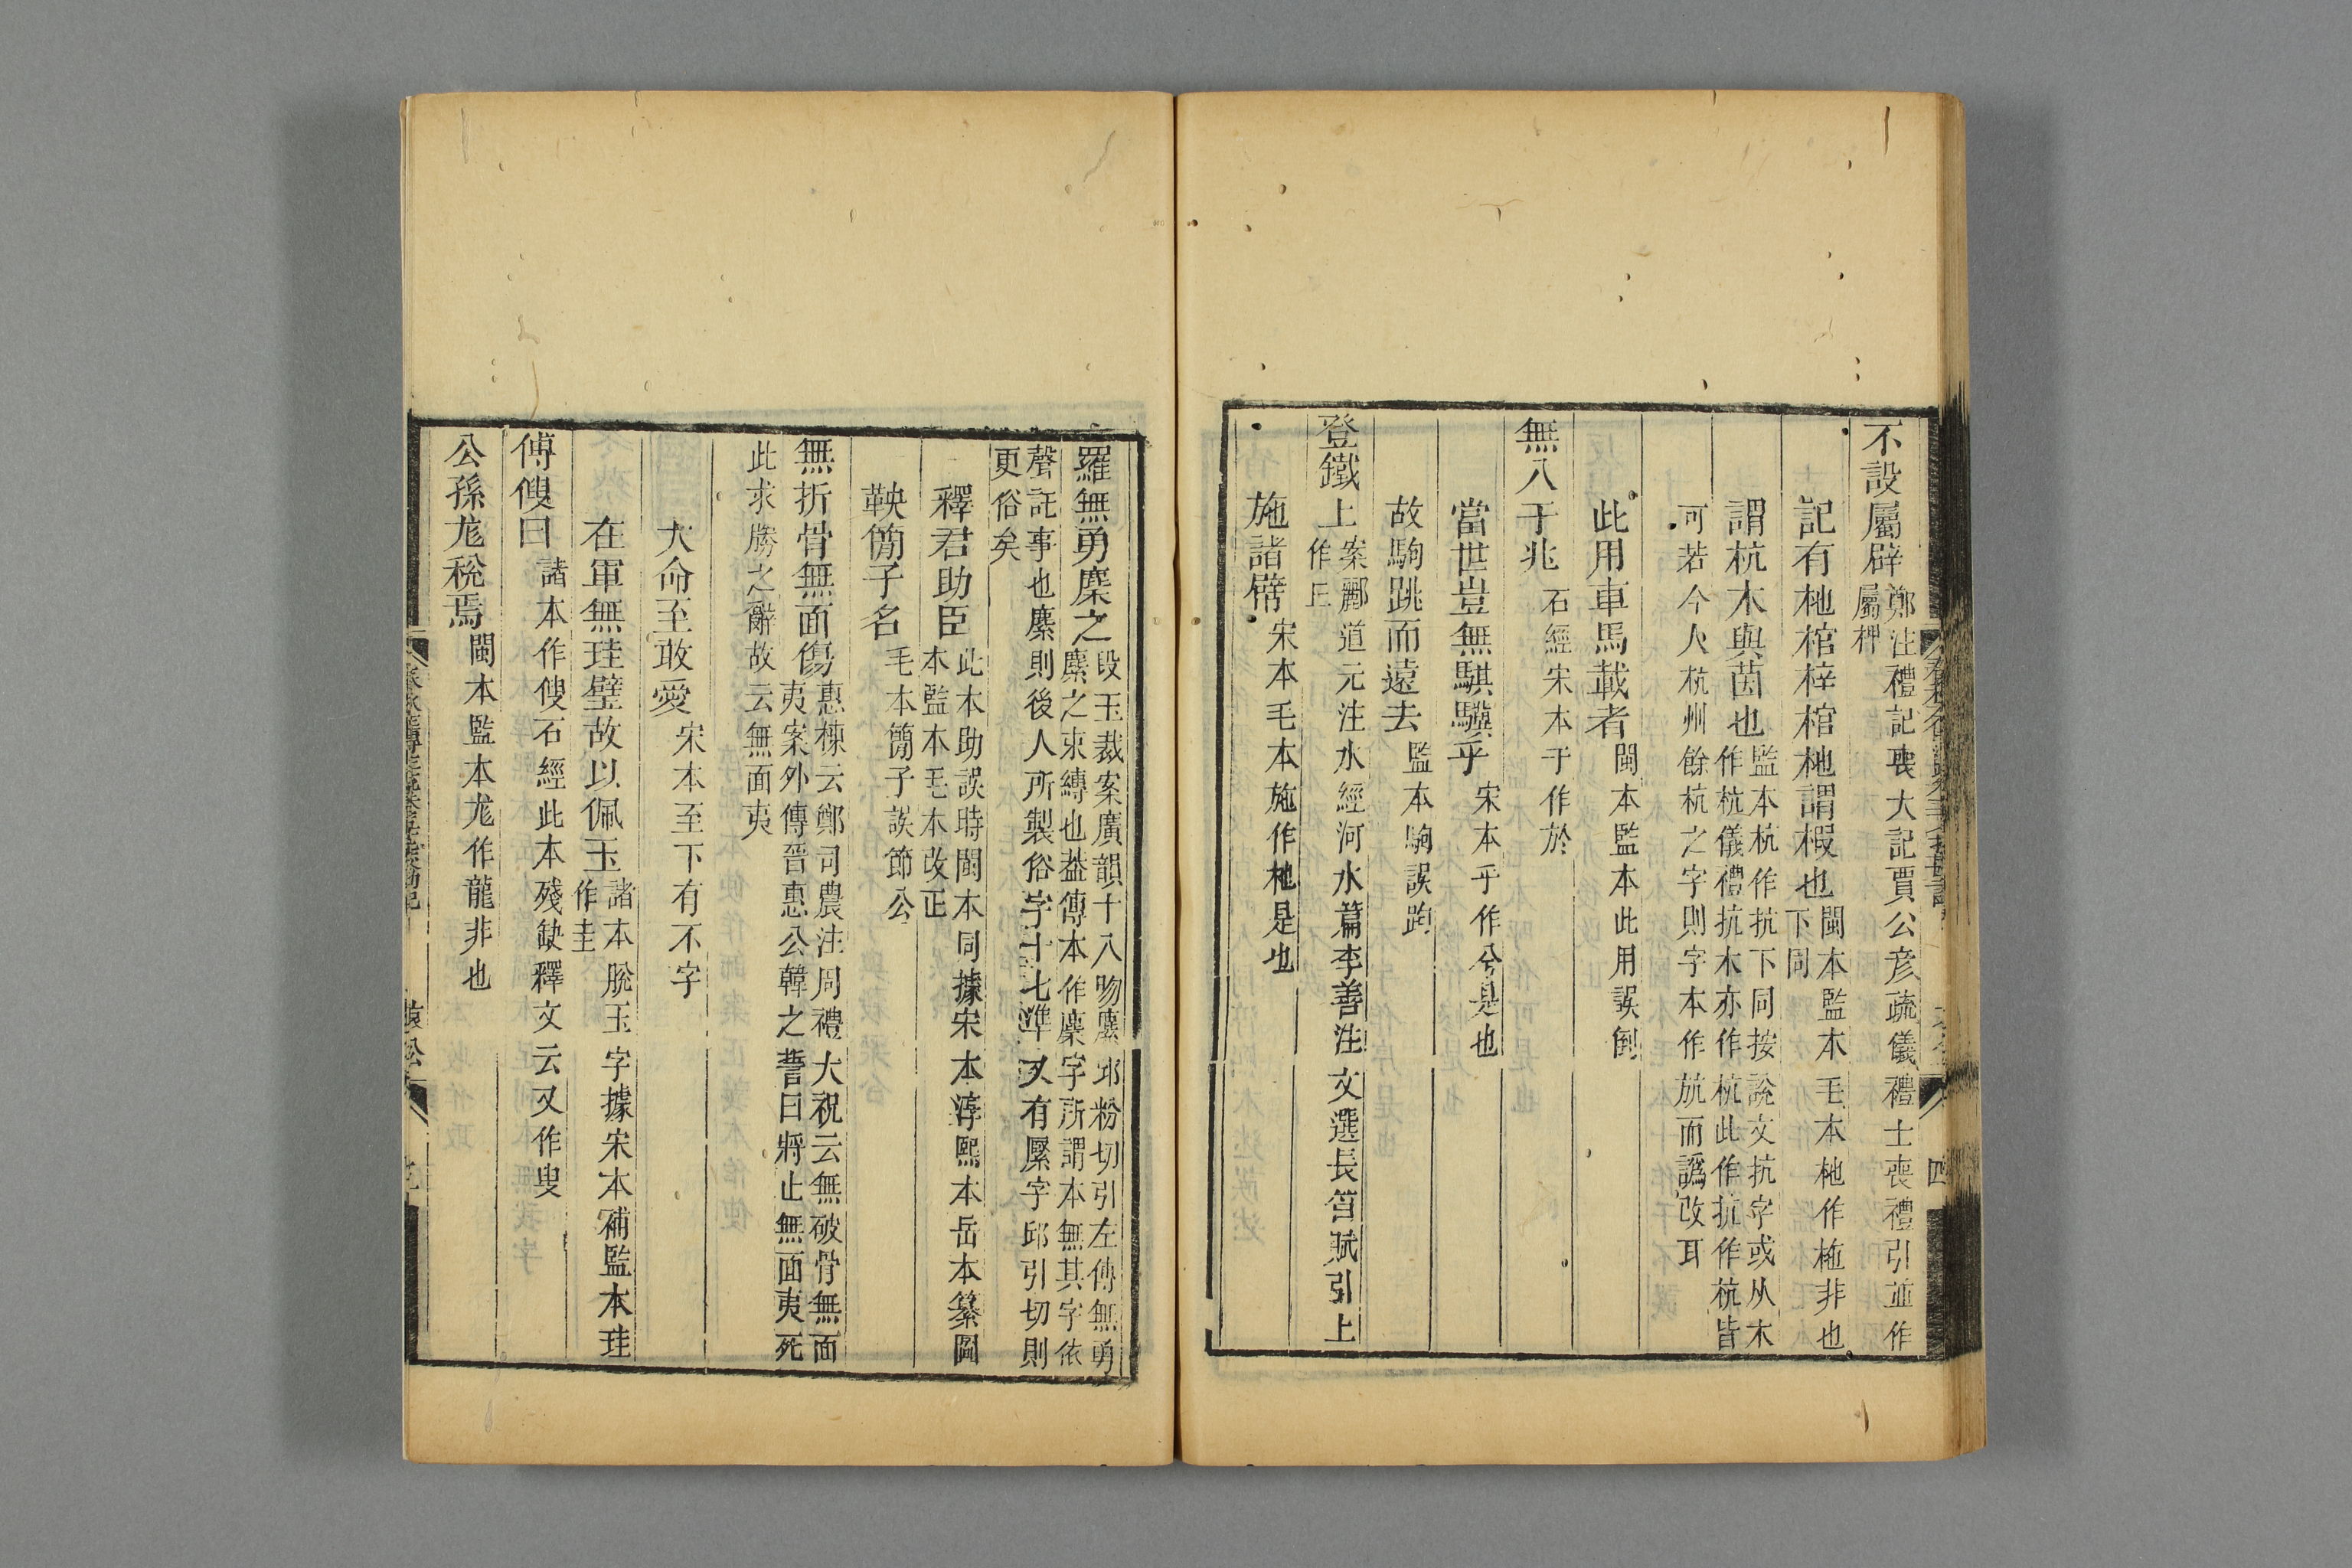 不設屬辟鄭注禮記喪大記賈公彦疏儀禮士喪禮引並作
屬椑
記有杝棺梓棺杝謂椴也閩本監本毛本杝作柂非也
下同
謂杭木與茵也監本杭作抗下同按說文抗字或从木
作杭儀禮抗木亦作杭此作抗作杭皆
可若今人杭州餘杭之字則字本作斻而譌改耳
此用車馬載者閩本監本此用誤倒
無入于兆石經宋本于作於
當世豈無騏驥乎宋本乎作兮是也
故駒跳而遠去監本駒誤跔
登鐵上案酈道元注水經河水篇李善注文選長笛賦引上
作丘
施諸幦宋本毛本施作杝是也
羅無勇麇之段玉裁案廣韻十八吻麕邱粉切引左傳無勇
麇之束縛也益傳本作麇字所謂本無其字依
聲託事也麇則後人所製俗字十七準又有麇字邱引切則
更俗矣
釋君助臣此本助誤時閩本同據宋本淳熙本岳本纂圖
本監本毛本改正
鞅簡子名毛本簡子誤節公
無折骨無面傷惠棟云鄭司農注周禮大祝云無破骨無面
夷案外傳晉惠公韓之誓曰將止無面夷死
此求勝之辭故云無面夷
大命至敢愛宋本至下有不字
在軍無珪璧故以佩玉諸本脫玉字據宋本補監本珪
作圭
傅傁曰諸本作傁石經此本殘缺釋文云又作叟
公孫尨稅焉閩本監本尨作龍非也